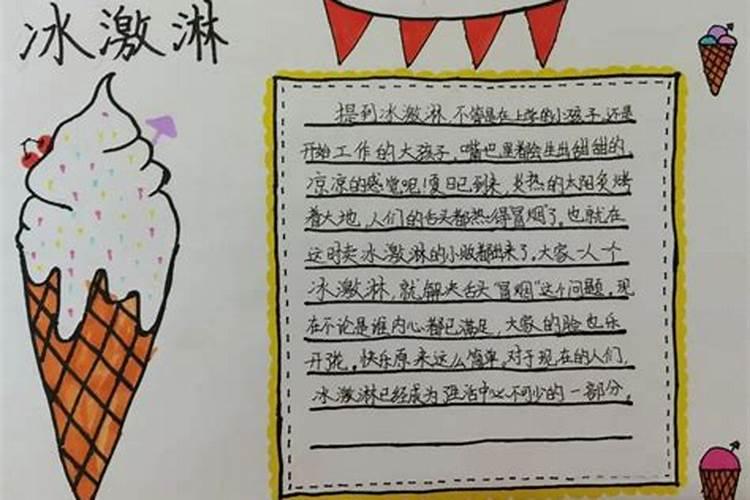 冰激淋
提到冰激淋不管是在上学的小孩子,还是
开始工作的大孩子,嘴也里都会生出甜甜的,
凉凉的感觉吧!夏日已到来,炎热的太阳炙烤
着大地,人们的舌头都热得"冒烟"了。也就在
这时卖冰激淋的小贩都出来了。大家一人一个
冰激淋,就解决舌头"冒烟"这个问题。现
在不论是谁内心都已满足,大家的脸也乐
开了。快乐原来这么简单,对于现在的人们,
冰激淋已经成为生活中必不可少的一部分。